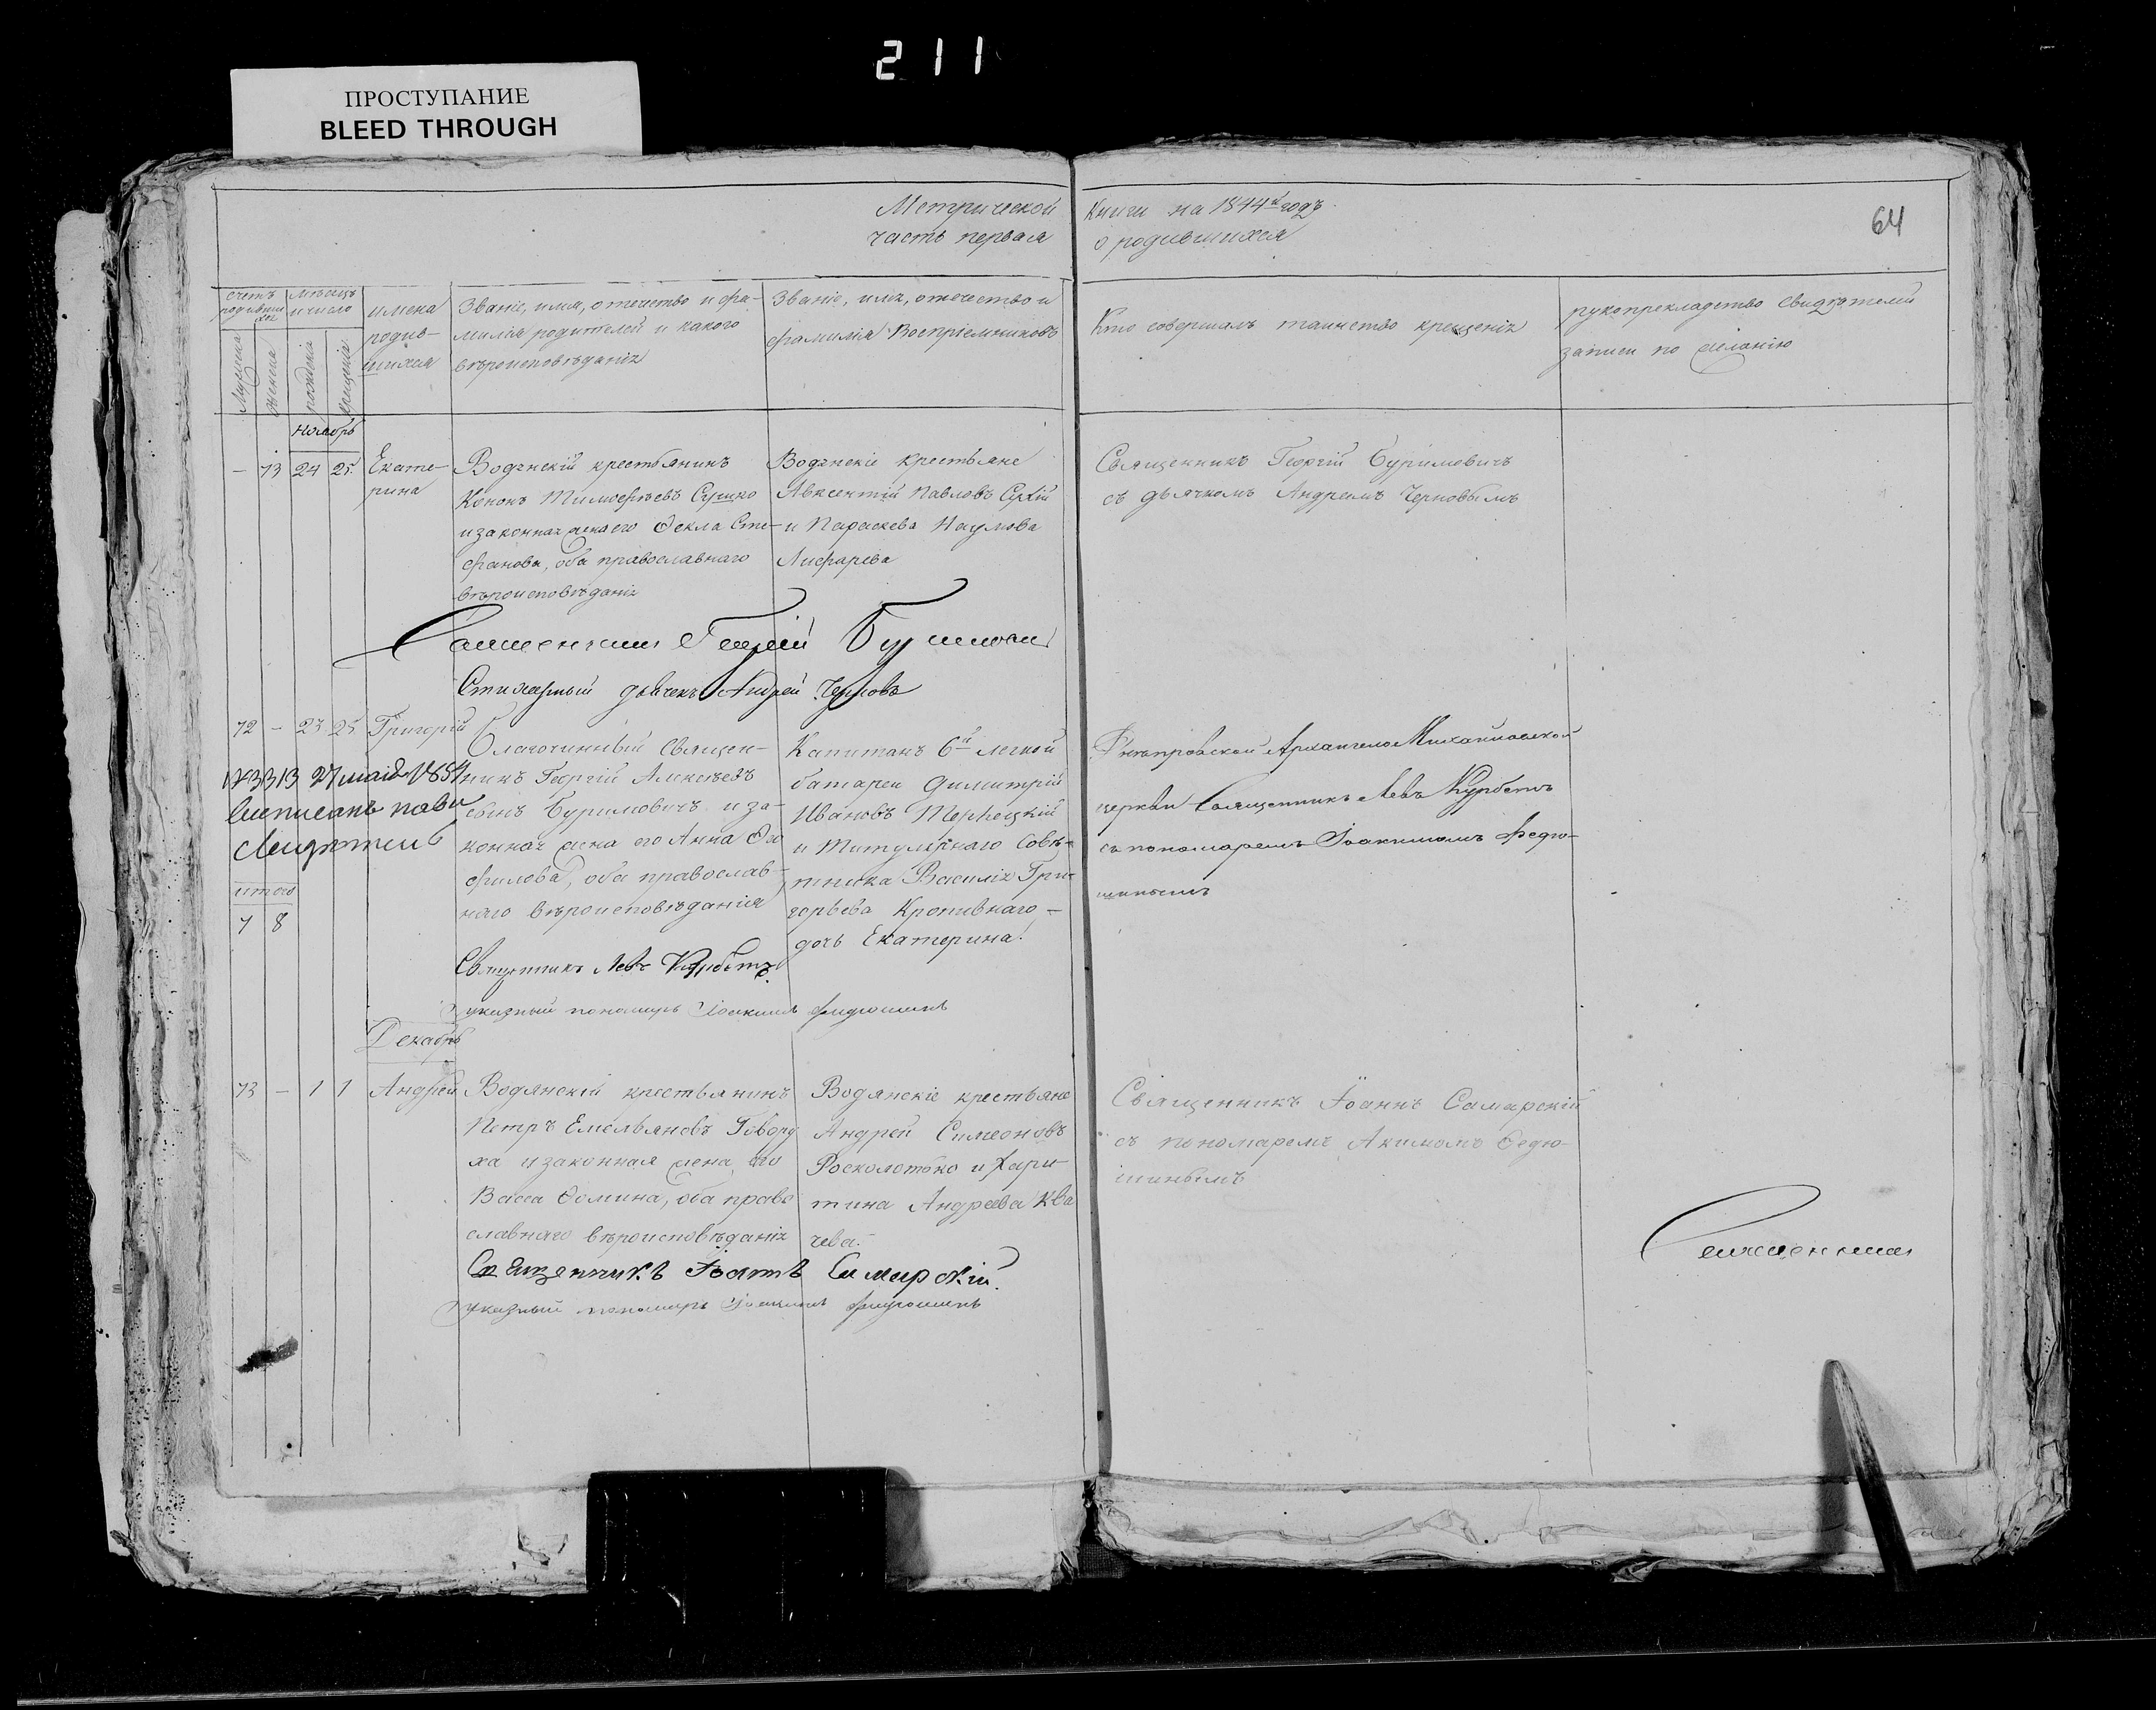 211
ПРОСТУПАНИЕ
BLEED THROUGH
Метрической Книги на 1844й годъ
часть первая о родившихся
64
счетъ родивших ся
мѣсяцъ и число
мужеска
женска
рожденія
крещенія
имена
родив-
шихся
Званіе, имя, отечество и фа-
милія родителей и какого
вѣроисповѣданія
Званіе, имя, отечество и
фамилія Воспріемниковъ
Кто совершалъ таинство крещенія
рукоприкладство свидѣтелей
записи по желанію
Ноябрь
- 73 24 25
Екате-
рина
Водянскій крестьянинъ
Кононъ Тимофѣевъ
и законная жена его Ѳекла Сте-
фанова, оба православнаго
вѣроисповѣданія
Водянскіе крестьяне
Авксентій Павловъ
и Параскева Наумова
Лифарева
Священникъ Георгій Буримовичъ
съ дьячкомъ Андреемъ Черновымъ
Священникъ Георгій Буримовичъ
Стихарный дьячекъ Андрей Черновъ
72 - 23 25 Григорій
Благочинный Священ-
никъ Георгій Алексѣевъ
сынъ Буримовичъ и за-
конная жена его Анна Ѳео
филова, оба православ-
наго вѣроисповѣданія
Капитанъ 6й легкой
батареи Димитрій
Ивановъ
и Титулярнаго Совѣ-
тника Василія Гри-
горьева Кропивнаго-
дочь Екатерина.
Днѣпровской Архангело Михайловской
церкви Священникъ Левъ Курбетъ
съ пономаремъ Іоакимомъ Федю-
шинымъ
№3313 27 1854
итого
7 8
Священникъ Левъ Курбетъ
указный пономарь Іоакимъ Федюшинъ
Декабрь
73 - 1 1 Андрей
Водянскій крестьянинъ
Петръ Емельяновъ Говору
ха и законная жена его
Васса Ѳомина, оба право
славнаго вѣроисповѣданія
Водянскіе крестьяне
Андрей Симеоновъ
Росколотько и Хари-
тина Андреева Ква
чева.
Священникъ Іоаннъ Самарскій
съ пономаремъ Акимомъ Ѳедю-
шинымъ
Священникъ Іоаннъ Самарскій.
указный пономарь Іоакимъ Федюшинъ
Священникъ